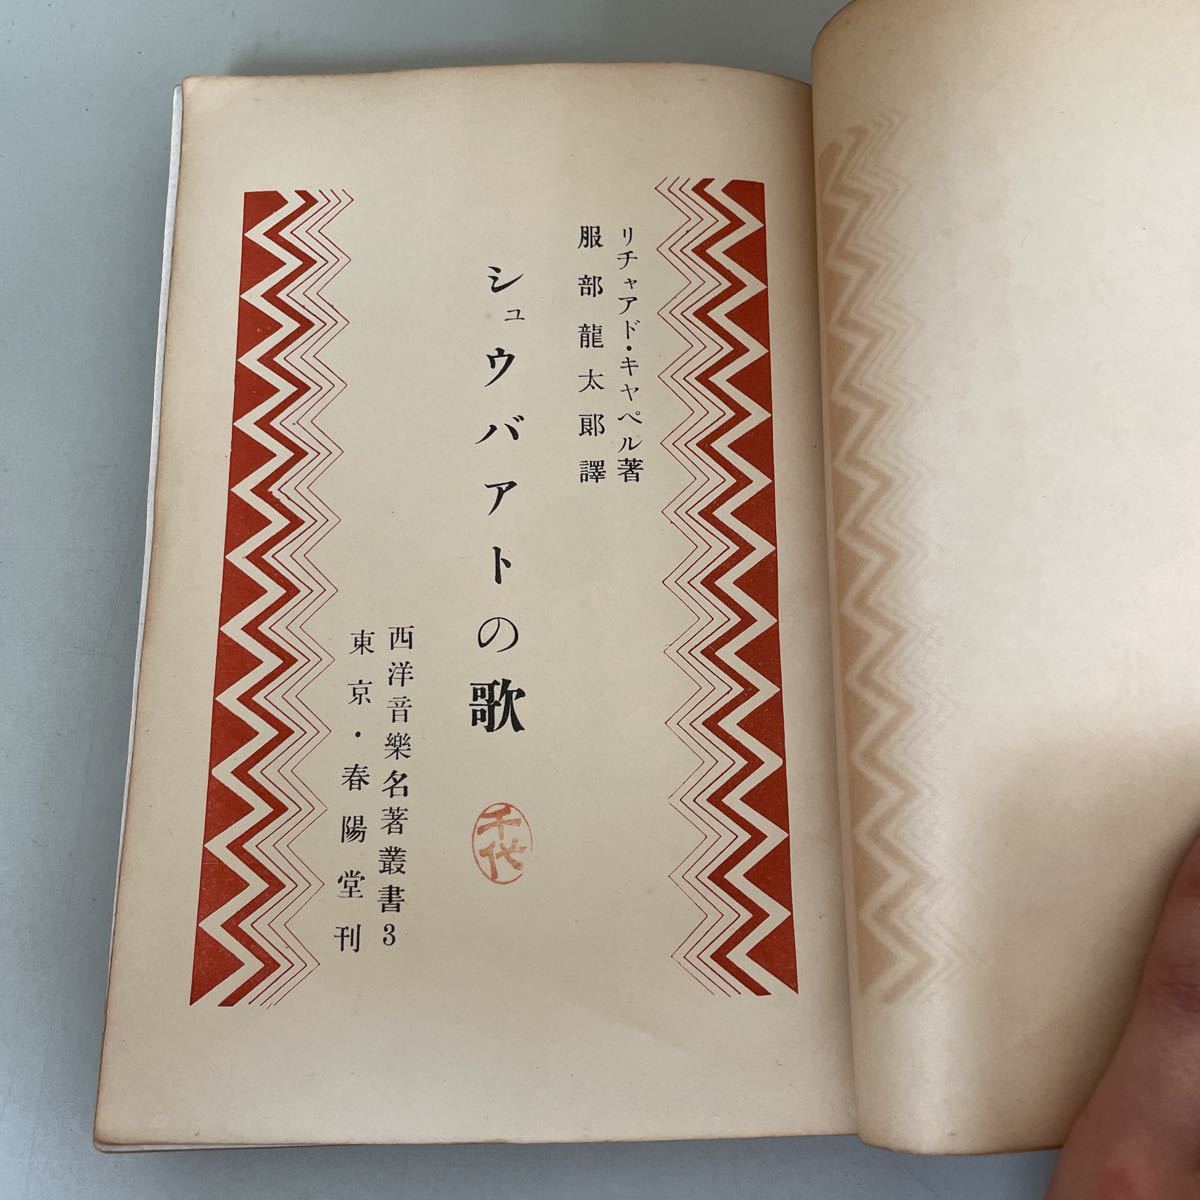 リチャアド・キャペル著
服部龍太郎譯
シュウバアトの歌
千代
西洋音樂名著叢書3
東京・春陽堂刊